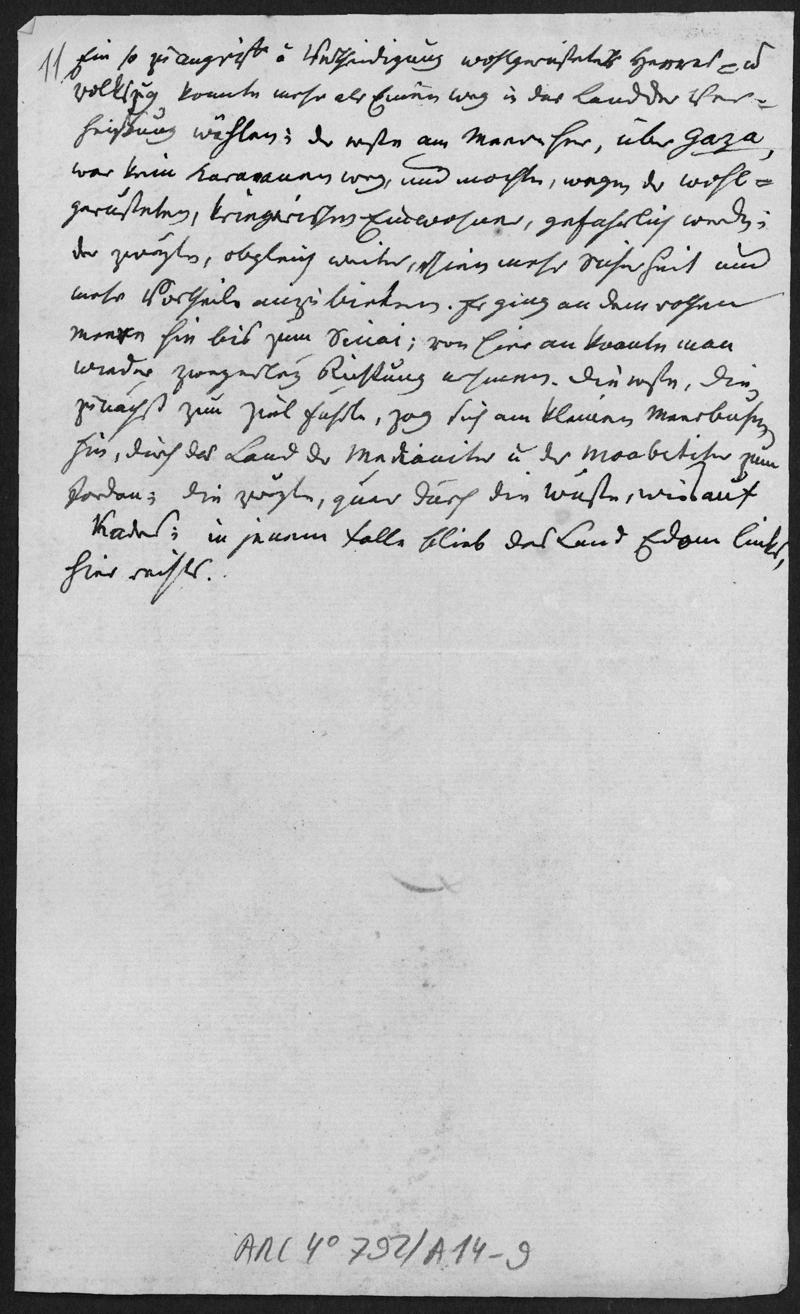 11
Ein so zu Angriff u Vertheidigung wohlgerüsteter Heeres= u
Volkszug konnte mehr als Einen Weg in das Land der Ver=
heißung wählen; der erste am Meere her, über Gaza,
war kein Karavanenweg, und mochte, wegen der wohl=
gerüsteten, kriegerischen Einwohner, gefährlich werden;
der zweyte, obgleich weiter, schien mehr Sicherheit und
mehr Vortheile anzubieten. Er ging an dem rothen
Meere hin bis zum Sinai; von hier an konnte man
wieder zweyerley Richtung nehmen. Die erste, die
zunächst zum Ziel führte, zog sich am kleinen Meerbusen
hin, durch das Land der Midianiter u der Moabiter zum
Jordan; die zweyte, quer durch die Wüste, wies auf
Kades; in jenem Falle blieb das Land Edom links,
hier rechts.
ARC 4° 792/A14-9